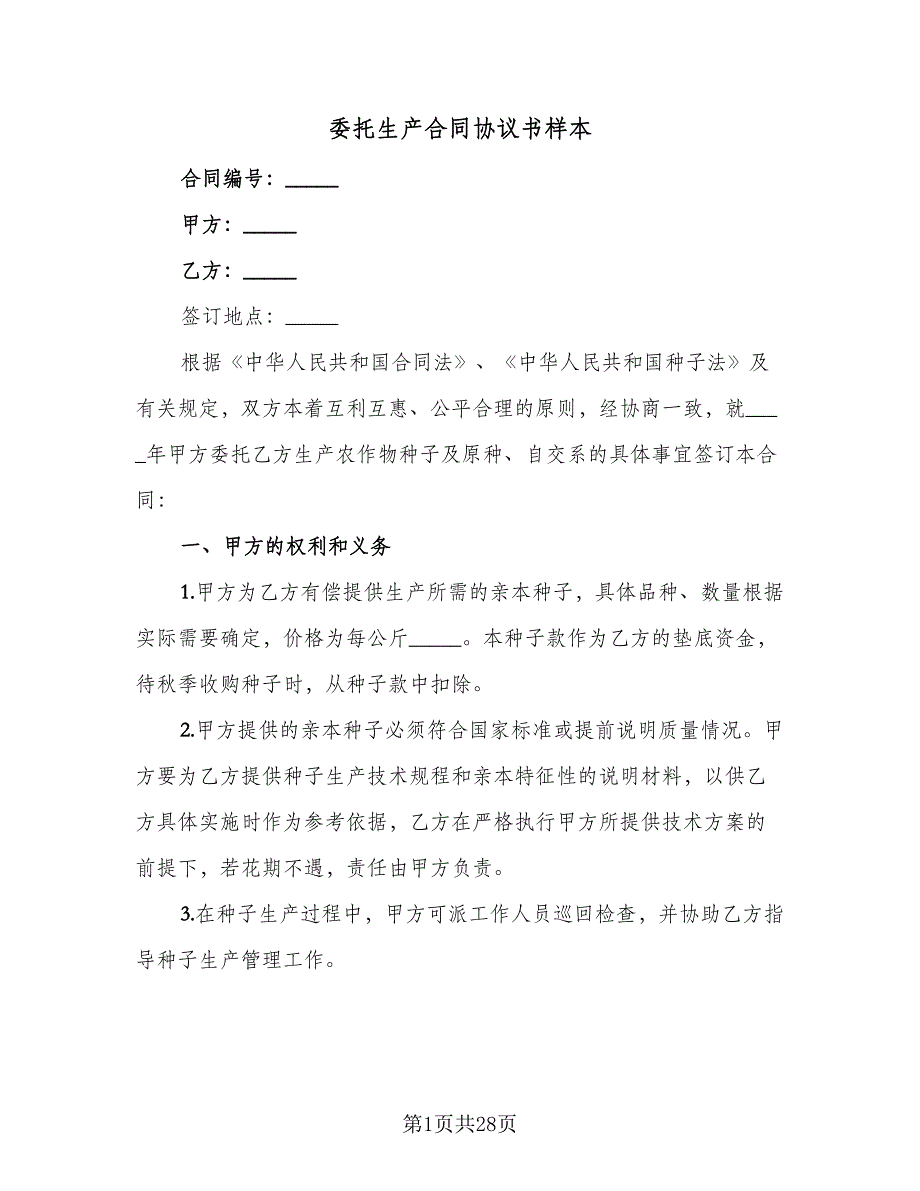 委托生产合同协议书样本
合同编号：_____
甲方：_____
乙方：_____
签订地点：_____
根据《中华人民共和国合同法》、《中华人民共和国种子法》及
有关规定，双方本着互利互惠、公平合理的原则，经协商一致，就___
_年甲方委托乙方生产农作物种子及原种、自交系的具体事宜签订本合
同：
一、甲方的权利和义务
1.甲方为乙方有偿提供生产所需的亲本种子，具体品种、数量根据
实际需要确定，价格为每公斤_____。本种子款作为乙方的垫底资金，
待秋季收购种子时，从种子款中扣除。
2.甲方提供的亲本种子必须符合国家标准或提前说明质量情况。甲
方要为乙方提供种子生产技术规程和亲本特征性的说明材料，以供乙
方具体实施时作为参考依据，乙方在严格执行甲方所提供技术方案的
前提下，若花期不遇，责任由甲方负责。
3.在种子生产过程中，甲方可派工作人员巡回检查，并协助乙方指
导种子生产管理工作。
第1页共28页